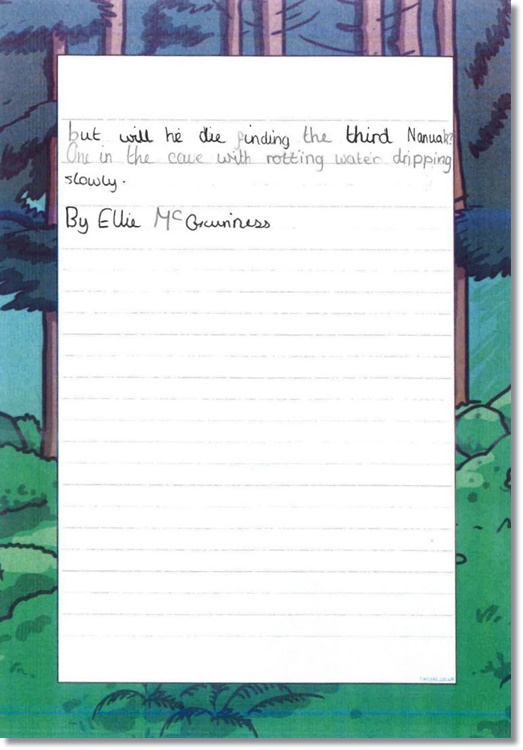 but will he die finding the third Nanuak?
One in the cave with rotting water dripping
slowly.
By Ellie McGuinness